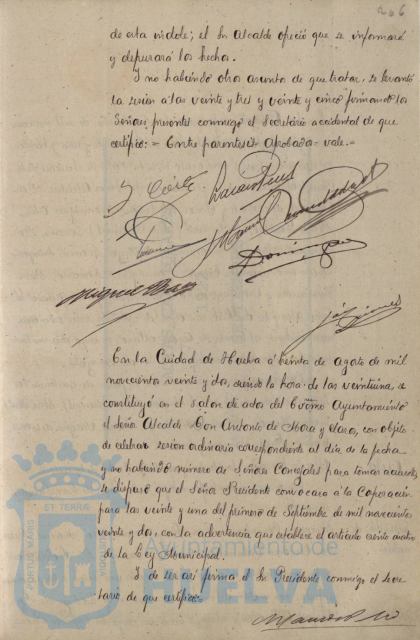 206
de esta indole; el Sr Alcalde ofreció que se informará
y depurará los hechos.
Y no habiendo otro asunto de que tratar, se levantó
la sesion a las veinte y tres y veinte y cinco firmando los
Señores presentes conmigo el Secretario accidental de que
certifico: = Entre parentesis = Aprobada = vale. =
Dominguez
Miguel
En la Ciudad de Huelva á treinta de agosto de mil
novecientos veinte y dos, siendo la hora de las veintiuna, se
constituyó en el salon de actos del Excmo Ayuntamiento
el Señor Alcalde Don Antonio de Mora y Claro, con objeto
de celebrar sesion ordinaria correspondiente al dia de la fecha
y no habiendo número de Señores Concejales para tomar acuerdo,
se dispuso que el Señor Presidente convocara á la Coporación
para las veinte y una del primero de Septiembre de mil novecientos
veinte y dos, con la advertencia que establece el articulo ciento cuatro
de la Ley Municipal.
Y de ser asi firma el Sr Presidente conmigo el secre-
tario de que certifico=
PORTUS MARIS ET TERRAE
Ayuntamiento de
HUELVA